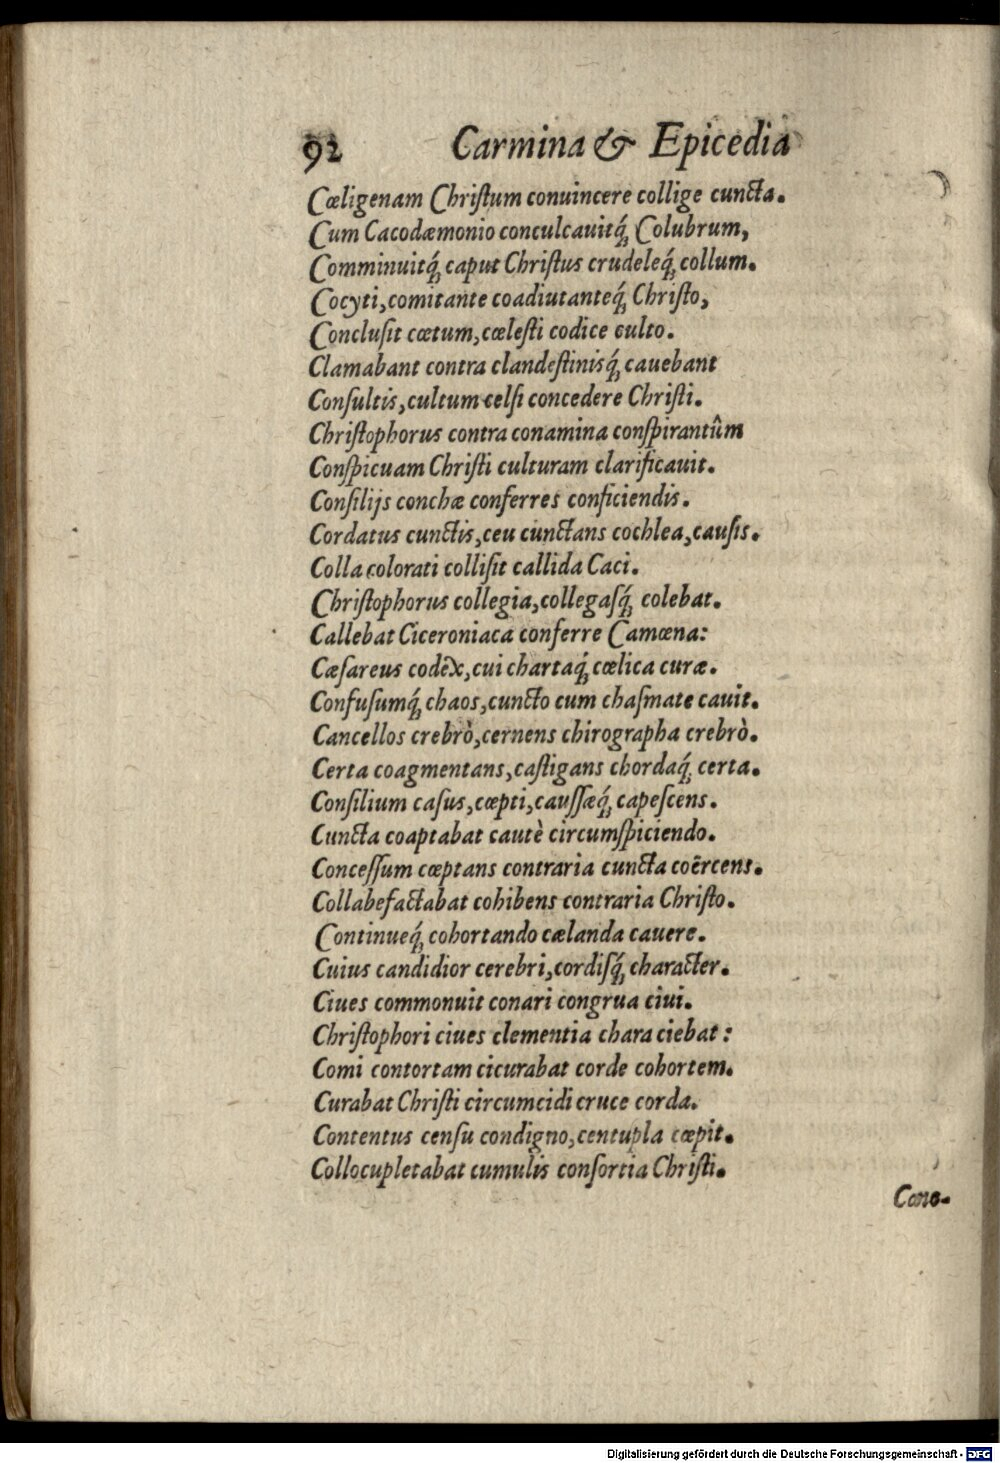 92 Carmina & Epicedia
Cœligenam Chriſtum conuincere collige cuncta.
Cum Cacodæmonio conculcauitq́; Colubrum,
Comminuitq́; caput Chriſtus crudeleq́; collum.
Cocyti, comitante coadiutanteq́; Chriſto,
Concluſit cœtum, cœleſti codice culto.
Clamabant contra clandeſtinisq́; cauebant
Conſultis, cultum celſi concedere Chriſti.
Chriſtophorus contra conamina conſpirantûm
Conſpicuam Chriſti culturam clarificauit.
Conſilijs conchæ conferres conficiendis.
Cordatus cunctis, ceu cunctans cochlea, cauſis.
Colla colorati colliſit callida Caci.
Chriſtophorus collegia, collegaſq́; colebat.
Callebat Ciceroniaca conferre Camœna:
Cæſareus codex, cui chartaq́; cœlica curæ.
Confuſumq́; chaos, cuncto cum chaſmate cauit.
Cancellos crebrò, cernens chirographa crebrò.
Certa coagmentans, caſtigans chordaq́; certa.
Conſilium caſus, cœpti, cauſſæq́; capeſcens.
Cuncta coaptabat cautè circumſpiciendo.
Conceſſum cœptans contraria cuncta coërcens.
Collabefactabat cohibens contraria Chriſto.
Continueq́; cohortando cælanda cauere.
Cuius candidior cerebri, cordiſq́; character.
Ciues commonuit conari congrua ciui.
Chriſtophori ciues clementia chara ciebat:
Comi contortam cicurabat corde cohortem.
Curabat Chriſti circumcidi cruce corda.
Contentus cenſu condigno, centupla cœpit.
Collocupletabat cumulis conſortia Chriſti.
Digitalisierung gefördert durch die Deutsche Forschungsgemeinschaft - DFG